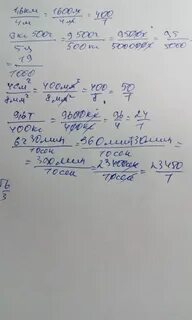 1,6км/4м = 1600м/4м = 400/1
3кг500г/5ц = 9500г/500кг = 9500х/500000х = 95/5000
19/1000
4см²/8мм² = 400мм²/8мм² = 400/8 = 50/1
96т/400кг = 9600кг/400кг = 96/4 = 24/1
6ч30мин/10сек = 360мин+30мин/10сек =
= 390мин/10сек = 23400сек/10сек = 23450/1